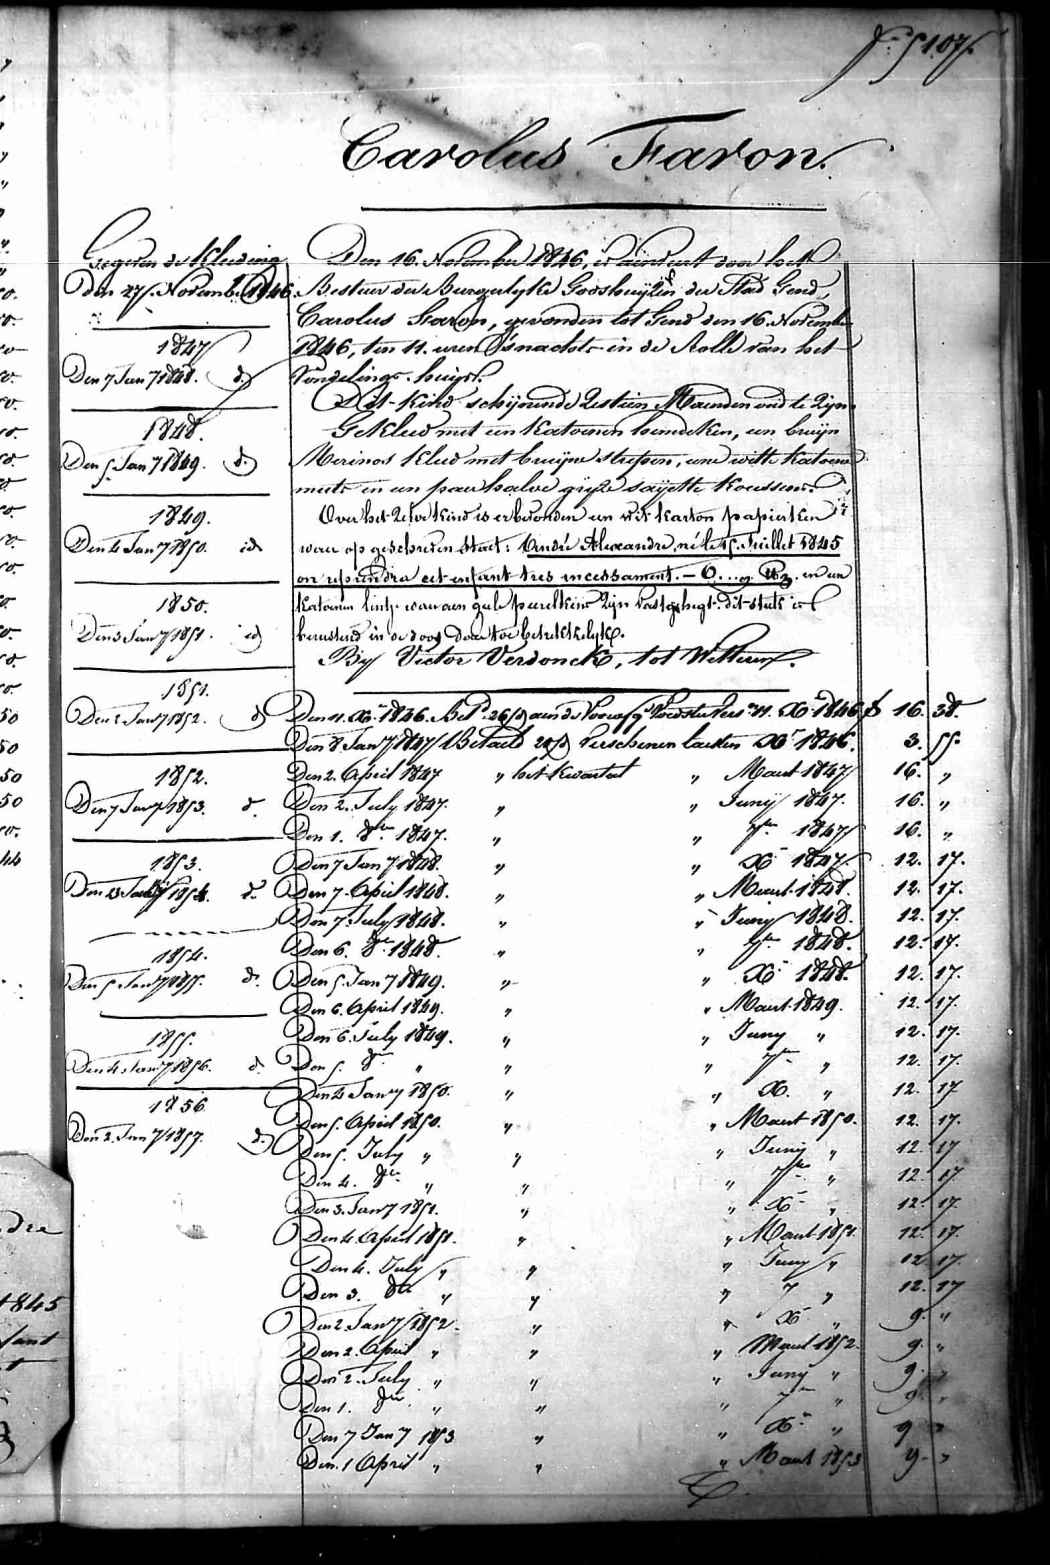 107.
Carolus Faron.
Gegeven de Kleeding
Den 27. November 1846
1847
Den 7 Jany 1848. d
1848.
Den 5 Jany 1849. d.
1849.
Den 4 Jany 1850. id
1850.
Den 3 Jany 1851. id
1851.
Den 2 Jany 1852. d
1852.
Den 7 Jany 1853. d.
1853.
Den 1854. d.
1854.
Den 5 Jany d.
1855.
Den 4 Jany 1856. d.
1856
Den 2. Jany 1857. d.
Den 16. November 1846, is door het
Bestuur der Burgerlyke Godshuijzen der Stad Gend,
Carolus Faron, gevonden tot Gend den 16. November
1846, ten 11. uren 's nachts in de Rolle van het
Vondelings-huijs.
Dit kind schijnende Zestien Maenden oud te Zijn
Gekleed met een Katoenen hemdeken, een bruijn
Merinos Kleed met bruijne streepen, eene witte Katoene
muts en een paer halve grijze saijette Koussens.
Over het Zelve kind is er bevonden een wit karton papierken
waer op geschreven staet: André Alexandre, né le 15. Juillet 1845
on reprendra cet enfant tres incessament. — en een
Katoenen lintje waeraen gele peerelkens Zijn vastgehegt. dit stuk is
berustend in de doos daer toe betrekkelyk.
By Victor Verdonck, tot Wetteren.
Den 11. Xr. 1846. Bet. 26 aen de 11. Xr 1846 f 16. 38.
Den 8. Jany 1847 Betaeld verschenen laetsten Xr 1846. 3. 55.
Den 2. April 1847 " het Kwartael " Maert 1847 16. "
Den 2. July 1847. " " Junij 1847. 16. "
Den 1. 8re 1847. " " 7re 1847 16. "
Den 7 Jany 1848. " " Xr 1847. 12. 17.
Den 7. April 1848. " " Maert 1848. 12. 17.
Den 7. July 1848. " " Juny 1848. 12. 17.
Den 6. 8re 1848. " " 7re 1848. 12. 17.
Den 5. Jany 1849. " " Xr 1848. 12. 17.
Den 6. April 1849. " " Maert 1849. 12. 17.
Den 6. July 1849. " " Juny " 12. 17.
Den 5. 8re " " " 7re " 12. 17.
Den 4 Jany 1850. " " X. " 12. 17
Den 5. April 1850. " " Maert 1850. 12. 17.
Den 5. July " " " Juny " 12. 17
Den 4. 8re " " " 7re " 12. 17.
Den 3. Jany 1851. " " Xr " 12. 17.
Den 4. April 1851. " " Maert 1851. 12. 17.
Den 4. July " " " Juny " 12 17.
Den 3. 8re " " " 7 " 12. 17
Den 2 Jany 1852. " " X " 9. "
Den 2. April " " " Maert 1852. 9. "
Den 2. July " " " Juny " 9. "
Den 1. 8re " " " 7re " 9. "
Den 7 Jany 1853 " " Xr " 9 "
Den 1 April " " " Maert 1853 9. "